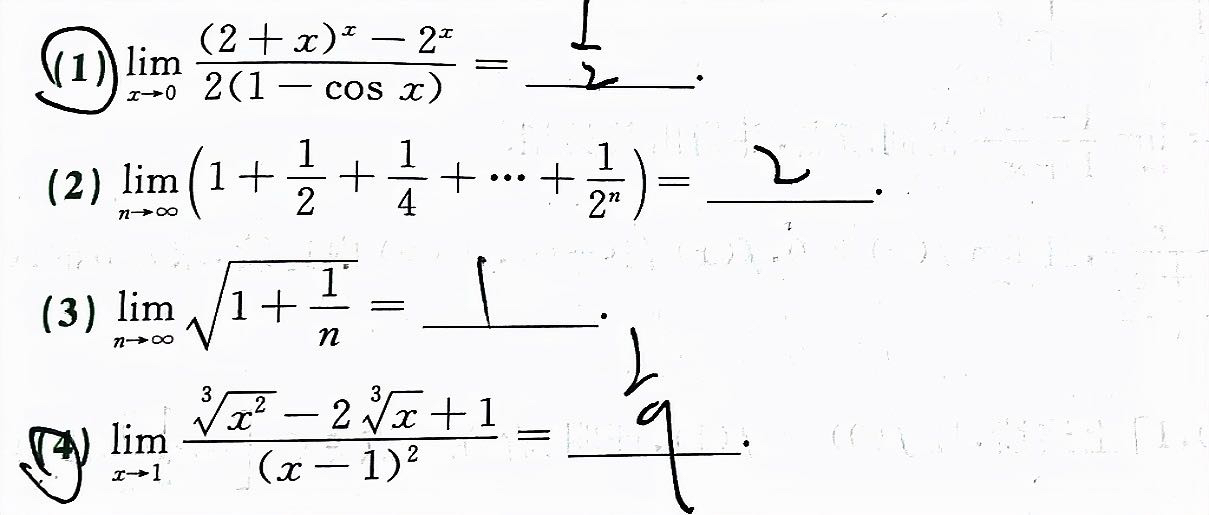 (1) lim x→0 ((2+x)^x − 2^x) / (2(1 − cos x)) = 1/2.
(2) lim n→∞ (1 + 1/2 + 1/4 + ⋯ + 1/2ⁿ) = 2.
(3) lim n→∞ √(1 + 1/n) = 1.
(4) lim x→1 (∛x² − 2∛x + 1) / (x − 1)² = 1/9.